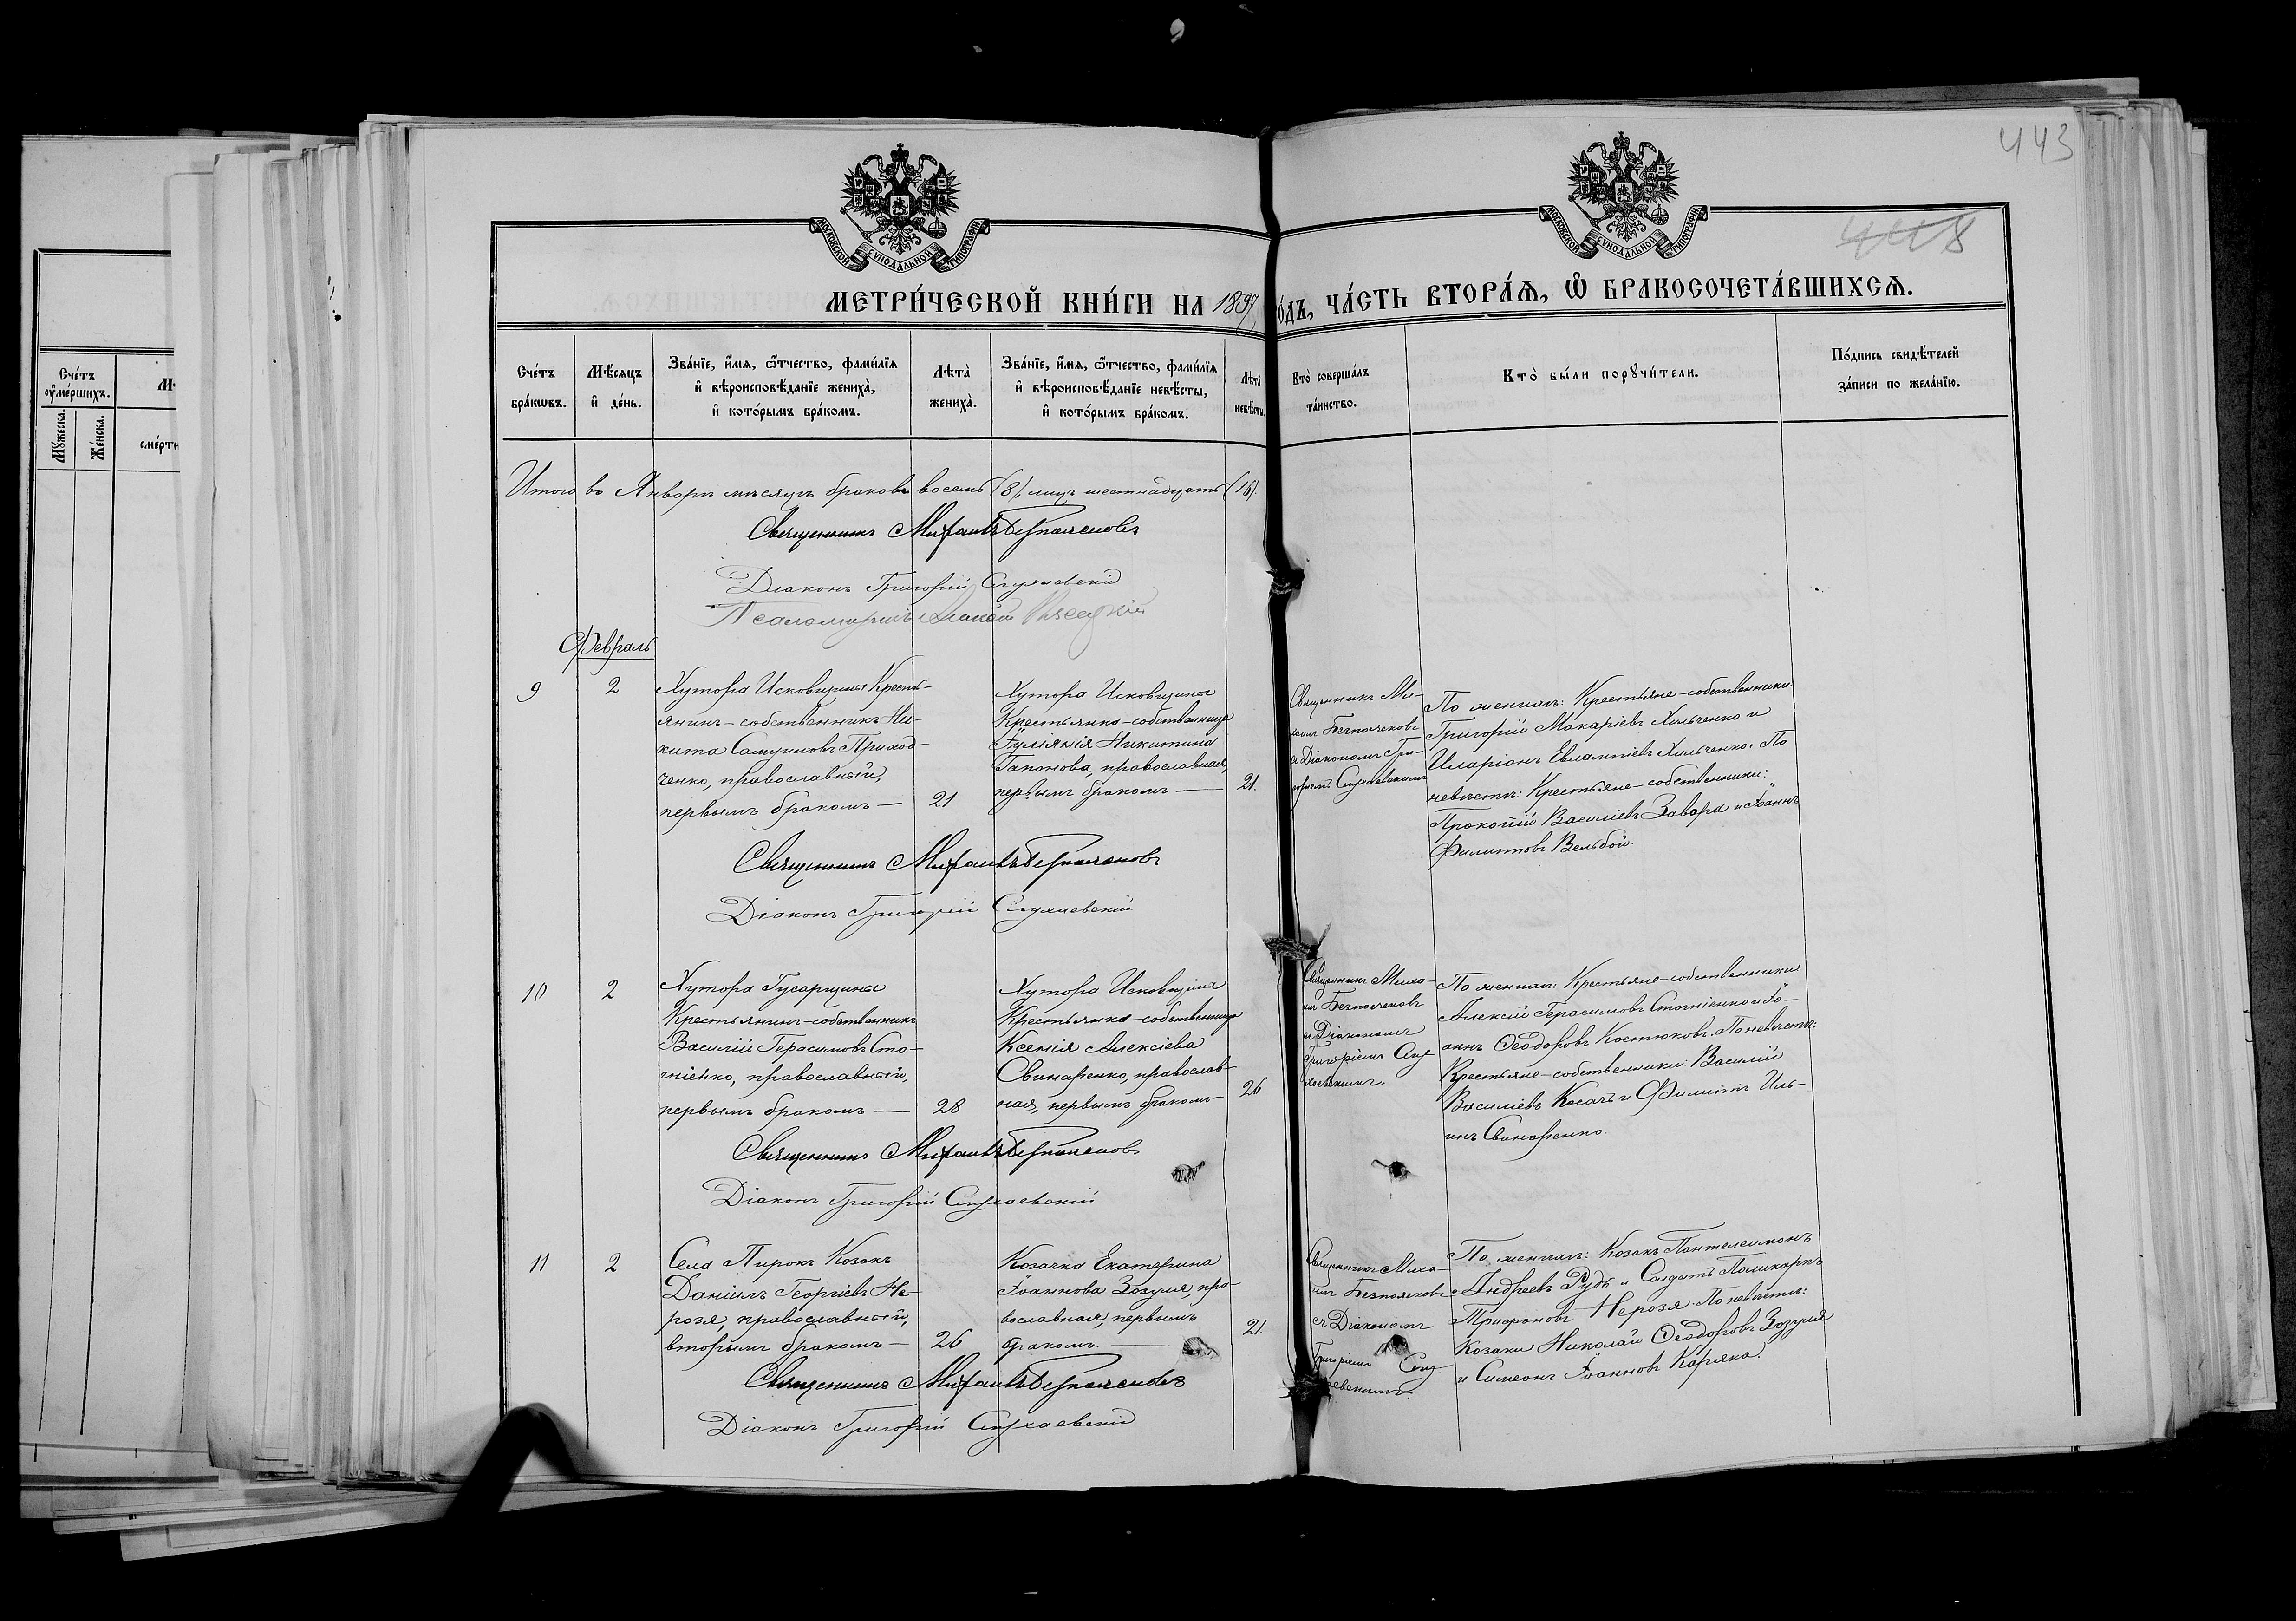 443
448
МОСКОВСКОЙ СѴНОДАЛЬНОЙ ТИПОГРАФІИ
МОСКОВСКОЙ СѴНОДАЛЬНОЙ ТИПОГРАФІИ
МЕТРИ́ЧЕСКОЙ КНИ́ГИ НА 1897 ГО́ДЪ, ЧА́СТЬ ВТОРА́Ѧ, Ѽ БРАКОСОЧЕТА́ВШИХСѦ.
Сче́тъ ᲂу҆ме́ршихъ.
Мꙋ́жеска.
Же́нска.
сме́рти
Сче́тъ бра́кѡвъ.
Мѣ́сяцъ и҆ де́нь.
Зва́нїе, и҆́мѧ, ѻ҆́тчество, фами́лїѧ
и҆ вѣроисповѣ́данїе жениха̀,
и҆ кото́рымъ бра́комъ.
Лѣта̀ жениха̀.
Зва́нїе, и҆́мѧ, ѻ҆́тчество, фами́лїѧ
и҆ вѣроисповѣ́данїе невѣ́сты,
и҆ кото́рымъ бра́комъ.
Лѣта̀ невѣ́сты.
Кто̀ соверша́лъ та́инство.
Кто̀ бы́ли порꙋчи́тели.
По́дпись свидѣ́телей за́писи по жела́нїю.
Итого въ Январѣ мѣсяцѣ браковъ восемь (8), лицъ шестнадцать (16).
Священникъ Михаилъ Безпояковъ
Діаконъ Григорій Слухаевскій
Псаломщикъ
Февраль
9
2
Хутора Исковщины Кресть-
янинъ-собственникъ Ни-
кита Самуиловъ Приход-
ченко, православный,
первымъ бракомъ —
21
Хутора Исковщины
Крестьянка-собственница
Іуліянія Никитина
Гапонова, православная,
первымъ бракомъ —
21.
Священникъ Ми-
хаилъ Безпояковъ
съ Діакономъ Гри-
горіемъ Слухаевскимъ
По женихѣ: Крестьяне-собственники
Григорій Макаріевъ Хильченко и
Иларіонъ Евлампіевъ Хильченко. По
невѣстѣ: Крестьяне-собственники:
Прокопій Василіевъ Завора и Іоаннъ
Филипповъ Вельбой.
Священникъ Михаилъ Безпояковъ
Діаконъ Григорій Слухаевскій
10
2
Хутора Гусарщины
Крестьянинъ-собственникъ
Василій Герасимовъ Сто-
гніенко, православный,
первымъ бракомъ —
28
Хутора Исковщины
Крестьянка-собственница
Ксенія Алексіева
Свинаренко, православ-
ная, первымъ бракомъ —
26
Священникъ Миха-
илъ Безпояковъ
съ Діакономъ
Григоріемъ Слу-
хаевскимъ.
По женихѣ: Крестьяне-собственники
Алексій Герасимовъ Стогніенко и Іо-
аннъ Ѳеодоровъ Костюковъ. По невѣстѣ:
Крестьяне-собственники: Василій
Василіевъ Косачъ и Филиппъ Иль-
инъ Свинаренко.
Священникъ Михаилъ Безпояковъ
Діаконъ Григорій Слухаевскій
11
2
Села Пирокъ Козакъ
Даніилъ Георгіевъ Не-
розя, православный,
вторымъ бракомъ —
26
Козачка Екатерина
Іоаннова Зозуля, пра-
вославная, первымъ
бракомъ. —
21.
Священникъ Миха-
илъ Безпояковъ
съ Діакономъ
Григоріемъ Слу-
хаевскимъ.
По женихѣ: Козакъ Пантелеимонъ
Андреевъ Рудь и Солдатъ Поликарпъ
Трифоновъ Нерозя. По невѣстѣ:
Козаки Николай Ѳеодоровъ Зозуля
и Симеонъ Іоанновъ Каряка.
Священникъ Михаилъ Безпояковъ
Діаконъ Григорій Слухаевскій